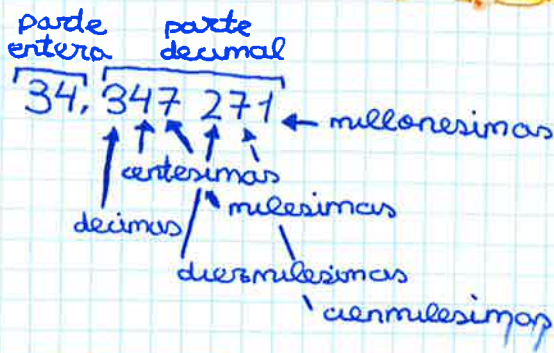 parte parte
entera decimal
34,347 271 millonesimas
centesimas
decimas milesimas
diezmilesimas
cienmilesimas